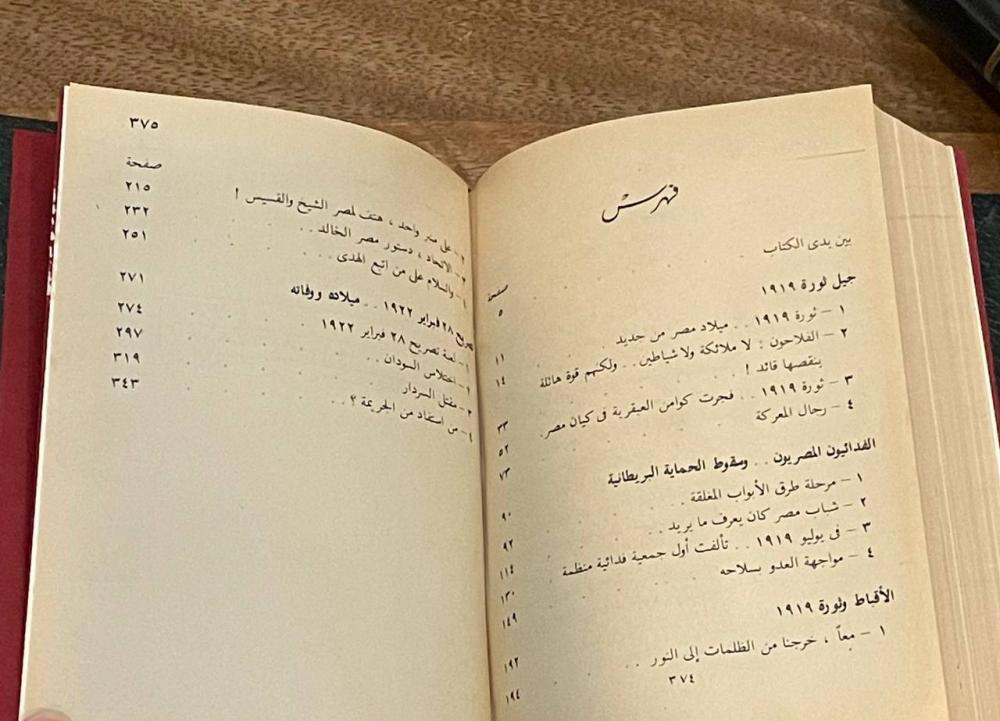 فهرس
صفحة
بين يدى الكتاب . . . . ٥
جيل ثورة ١٩١٩ ١١
١ – ثورة ١٩١٩ . . ميلاد مصر من جديد . . ١٤
٢ – الفلاحون : لا ملائكة ولا شياطين . . ولكنهم قوة هائلة
ينقصها قائد ! ٣٣
٣ – ثورة ١٩١٩ . . فجرت كوامن العبقرية فى كيان مصر . ٥٢
٤ – رجال المعركة ٧٣
الفدائيون المصريون . . وسقوط الحماية البريطانية ٩٠
١ – مرحلة طرق الأبواب المغلقة . . ٩٢
٢ – شباب مصر كان يعرف ما يريد . . ١١٤
٣ – فى يوليو ١٩١٩ . . تألفت أول جمعية فدائية منظمة ١٣٠
٤ – مواجهة العدو بسلاحه ١٤٩
الأقباط وثورة ١٩١٩ ١٩٢
١ – معاً ، خرجنا من الظلمات إلى النور . . ١٩٤
٣٧٤
٣٧٥
صفحة
٢ – على منبر واحد ، هتف لمصر الشيخ والقسيس ! ٢١٥
٣ – الاتحاد ، دستور مصر الخالد . . ٢٣٢
٤ – والسلام على من اتبع الهدى . . . ٢٥١
تصريح ٢٨ فبراير ١٩٢٢ . . ميلاده ووفاته ٢٧١
١ – لعبة تصريح ٢٨ فبراير ١٩٢٢ ٢٧٤
٢ – اختلاس السودان . . ٢٩٧
٣ – مقتل السردار ٣١٩
٤ – من استفاد من الجريمة ؟ . . ٣٤٣